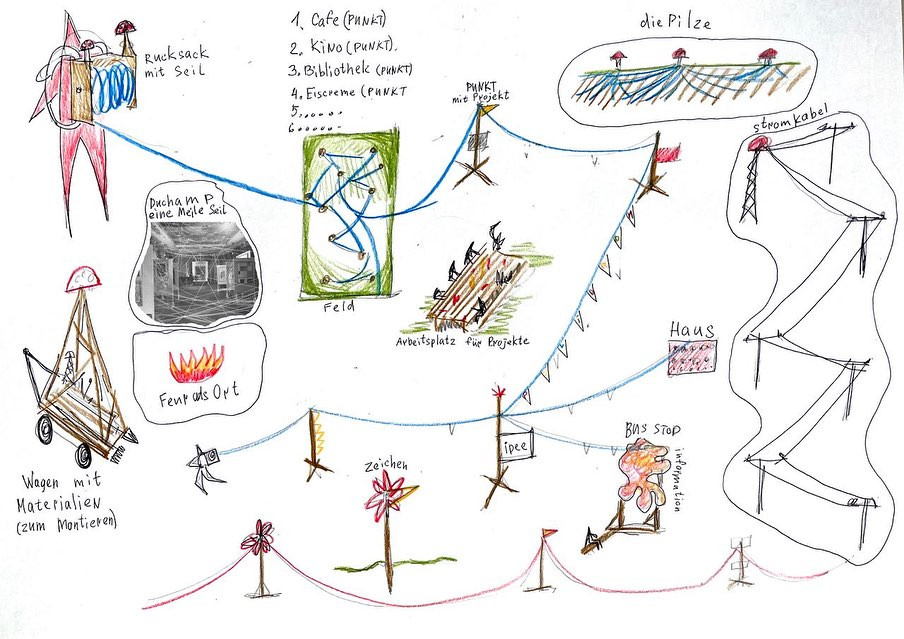 Rucksack
mit Seil
1. Cafe (PUNKT)
2. Kino (PUNKT).
3. Bibliothek (PUNKT)
4. Eiscreme (PUNKT
5.......
6......
die Pilze
PUNKT
mit Projekt
stromkabel
Duchamp
eine Meile Seil
Feld
Arbeitsplatz für Projekte
Haus
als Ort
idee
BUS STOP
information
Zeichen
Wagen mit
Materialien
(zum Montieren)